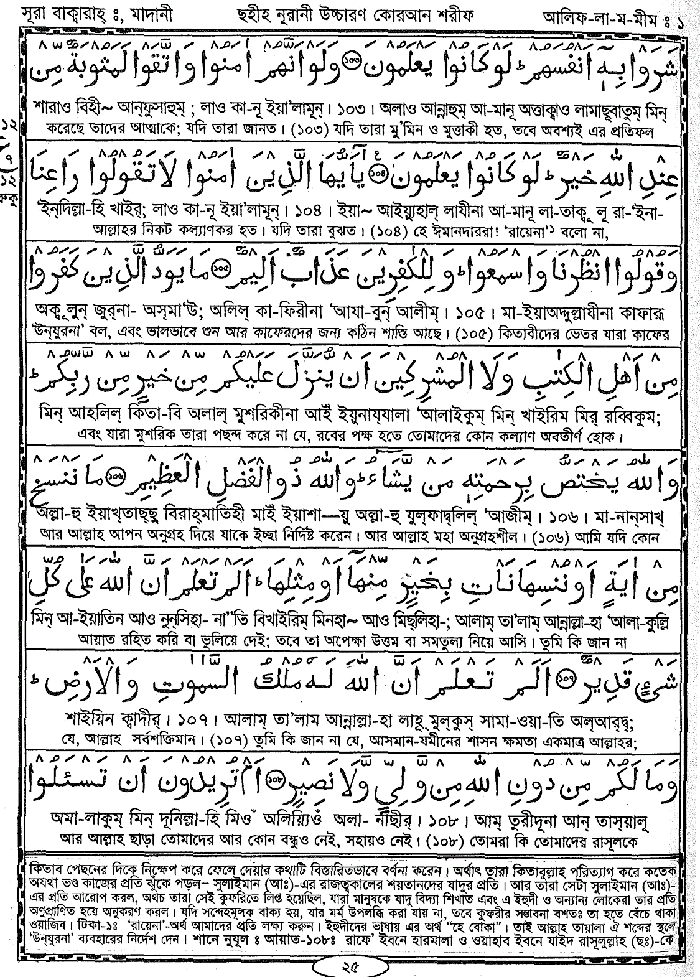 সূরা বাক্বারাহ্ ঃ, মাদানী ছহীহ নূরানী উচ্চারণ কোরআন শরীফ আলিফ-লা-ম-মীম ঃ ১
شَرَوْا بِهٖٓ اَنْفُسَهُمْ ؕ لَوْ كَانُوْا يَعْلَمُوْنَ ۝۱۰۲ وَلَوْ اَنَّهُمْ اٰمَنُوْا وَاتَّقَوْا لَمَثُوْبَةٌ مِّنْ
শারাও বিহী~ আন্‌ফুসাহুম্ ; লাও কা-নূ ইয়া'লামূন্। ১০৩। অলাও আন্নাহুম্ আ-মানূ অত্তাক্বাও লামাছূবাতুম্ মিন্
করেছে তাদের আত্মাকে; যদি তারা জানত। (১০৩) যদি তারা মু'মিন ও মুত্তাকী হত, তবে অবশ্যই এর প্রতিফল
عِنْدِ اللهِ خَيْرٌ ؕ لَوْ كَانُوْا يَعْلَمُوْنَ ۝۱۰۳ يٰٓاَيُّهَا الَّذِيْنَ اٰمَنُوْا لَا تَقُوْلُوْا رَاعِنَا
'ইন্‌দিল্লা-হি খাইর্; লাও কা-নূ ইয়া'লামূন্। ১০৪। ইয়া~ আইয়্যুহাল্ লাযীনা আ-মানূ লা-তাক্বূ লূ রা-'ইনা-
আল্লাহর নিকট কল্যাণকর হত। যদি তারা বুঝত। (১০৪) হে ঈমানদাররা! 'রায়েনা'১ বলো না,
وَقُوْلُوا انْظُرْنَا وَاسْمَعُوْا ؕ وَلِلْكٰفِرِيْنَ عَذَابٌ اَلِيْمٌ ۝۱۰۴ مَا يَوَدُّ الَّذِيْنَ كَفَرُوْا
অক্বূ লুন্ জুর্‌না- অস্‌মা'উ; অলিল্ কা-ফিরীনা 'আযা-বুন্ আলীম্। ১০৫। মা-ইয়াঅদ্দুল্লাযীনা কাফারূ
'উন্‌যুরনা' বল, এবং ভালভাবে শুন আর কাফেরদের জন্য কঠিন শাস্তি আছে। (১০৫) কিতাবীদের ভেতর যারা কাফের
مِنْ اَهْلِ الْكِتٰبِ وَلَا الْمُشْرِكِيْنَ اَنْ يُّنَزَّلَ عَلَيْكُمْ مِّنْ خَيْرٍ مِّنْ رَّبِّكُمْ ؕ
মিন্ আহলিল্ কিতা-বি অলাল্ মুশরিকীনা আইঁ ইয়ুনায্‌যালা 'আলাইকুম্ মিন্ খাইরিম মির্ রব্বিকুম;
এবং যারা মুশরিক তারা পছন্দ করে না যে, রবের পক্ষ হতে তোমাদের কোন কল্যাণ অবতীর্ণ হোক।
وَاللهُ يَخْتَصُّ بِرَحْمَتِهٖ مَنْ يَّشَآءُ ؕ وَاللهُ ذُو الْفَضْلِ الْعَظِيْمِ ۝۱۰۵ مَا نَنْسَخْ
অল্লা-হু ইয়াখ্‌তাছ্‌ছু বিরাহ্‌মাতিহী মাইঁ ইয়াশা—য়ু অল্লা-হু যুল্‌ফাদ্ব্‌লিল্ 'আজীম্। ১০৬। মা-নান্‌সাখ্
আর আল্লাহ আপন অনুগ্রহ দিয়ে যাকে ইচ্ছা নির্দিষ্ট করেন। আর আল্লাহ মহা অনুগ্রহশীল। (১০৬) আমি যদি কোন
مِنْ اٰيَةٍ اَوْ نُنْسِهَا نَاْتِ بِخَيْرٍ مِّنْهَآ اَوْ مِثْلِهَا ؕ اَلَمْ تَعْلَمْ اَنَّ اللهَ عَلٰى كُلِّ
মিন্ আ-ইয়াতিন আও নুন্‌সিহা- না''তি বিখাইরিম্ মিনহা~ আও মিছ্‌লিহা-; আলাম্ তা'লাম্ আন্নাল্লা-হা 'আলা-কুল্লি
আয়াত রহিত করি বা ভুলিয়ে দেই; তবে তা অপেক্ষা উত্তম বা সমতুল্য নিয়ে আসি। তুমি কি জান না
شَيْءٍ قَدِيْرٌ ۝۱۰۶ اَلَمْ تَعْلَمْ اَنَّ اللهَ لَهٗ مُلْكُ السَّمٰوٰتِ وَالْاَرْضِ ؕ
শাইয়িন ক্বাদীর্। ১০৭। আলাম্ তা'লাম আন্নাল্লা-হা লাহূ মুল্‌কুস্ সামা-ওয়া-তি অল্‌আরদ্ব্;
যে, আল্লাহ সর্বশক্তিমান। (১০৭) তুমি কি জান না যে, আসমান-যমীনের শাসন ক্ষমতা একমাত্র আল্লাহর;
وَمَا لَكُمْ مِّنْ دُوْنِ اللهِ مِنْ وَّلِيٍّ وَّلَا نَصِيْرٍ ۝۱۰۷ اَمْ تُرِيْدُوْنَ اَنْ تَسْئَلُوْا
অমা-লাকুম্ মিন্ দূনিল্লা-হি মিওঁ অলিয়্যিওঁ অলা- নাঁছীর্। ১০৮। আম্ তুরীদূনা আন্ তাস্‌য়ালূ
আর আল্লাহ ছাড়া তোমাদের আর কোন বন্ধুও নেই, সহায়ও নেই। (১০৮) তোমরা কি তোমাদের রাসূলকে
কিতাব পেছনের দিকে নিক্ষেপ করে ফেলে দেয়ার কথাটি বিস্তারিতভাবে বর্ণনা করেন। অর্থাৎ তারা কিতাবুল্লাহ পরিত্যাগ করে কতেক
অযথা ভণ্ড কাজের প্রতি ঝুঁকে পড়ল– সুলাইমান (আঃ)-এর রাজত্বকালের শয়তানদের যাদুর প্রতি। আর তারা সেটা সুলাইমান (আঃ)-
এর প্রতি আরোপ করল, অথচ তারা সেই কুফরিতে লিপ্ত হয়েছিল, যারা মানুষকে যাদু বিদ্যা শিখাত এবং এ ইহুদী ও অন্যান্য লোকেরা তার প্রতি
অনুপ্রাণিত হয়ে অনুকরণ করল। যদি সন্দেহমূলক বাক্য হয়, যার মর্ম উপলব্ধি করা যায় না, তবে কুফরীর সম্ভাবনা বশতঃ তা হতে বেঁচে থাকা
ওয়াজিব। টিকা-১ঃ 'রায়েনা'-অর্থ আমাদের প্রতি লক্ষ্য করুন। ইহুদীদের ভাষায় এর অর্থ "হে বোকা"। তাই আল্লাহ তায়ালা ঐ শব্দের স্থলে
'উন্‌যুরনা' ব্যবহারের নির্দেশ দেন। শানে নুযুল ঃ আয়াত-১০৮ঃ রাফে' ইবনে হারমালা ও ওয়াহাব ইবনে যাইদ রাসূলুল্লাহ (ছঃ)-কে
২৫